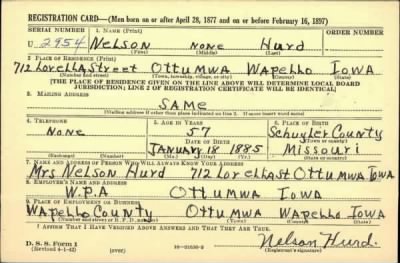 REGISTRATION CARD—(Men born on or after April 28, 1877 and on or before February 16, 1897)
SERIAL NUMBER 1. NAME (Print) ORDER NUMBER
U 2954 Nelson none Hurd
(First) (Middle) (Last)
2. PLACE OF RESIDENCE (Print)
712 Lorella Street Ottumwa Wapello Iowa
(Number and street) (Town, township, village, or city) (County) (State)
[THE PLACE OF RESIDENCE GIVEN ON THE LINE ABOVE WILL DETERMINE LOCAL BOARD
JURISDICTION; LINE 2 OF REGISTRATION CERTIFICATE WILL BE IDENTICAL]
3. MAILING ADDRESS
SAME
(Mailing address if other than place indicated on line 2. If same insert word same)
4. TELEPHONE 5. AGE IN YEARS 6. PLACE OF BIRTH
None 57 Schuyler County
DATE OF BIRTH (Town or county)
JANUARY 18 1885 Missouri
(Exchange) (Number) (Mo.) (Day) (Yr.) (State or country)
7. NAME AND ADDRESS OF PERSON WHO WILL ALWAYS KNOW YOUR ADDRESS
Mrs Nelson Hurd 712 Lorella St Ottumwa Iowa
8. EMPLOYER'S NAME AND ADDRESS
W.P.A Ottumwa Iowa
9. PLACE OF EMPLOYMENT OR BUSINESS
Wapello County Ottumwa Wapello Iowa
(Number and street or R. F. D. number) (Town) (County) (State)
I AFFIRM THAT I HAVE VERIFIED ABOVE ANSWERS AND THAT THEY ARE TRUE.
D. S. S. Form 1
(Revised 4-1-42) (over) 16—21630-2 Nelson Hurd.
(Registrant's signature)